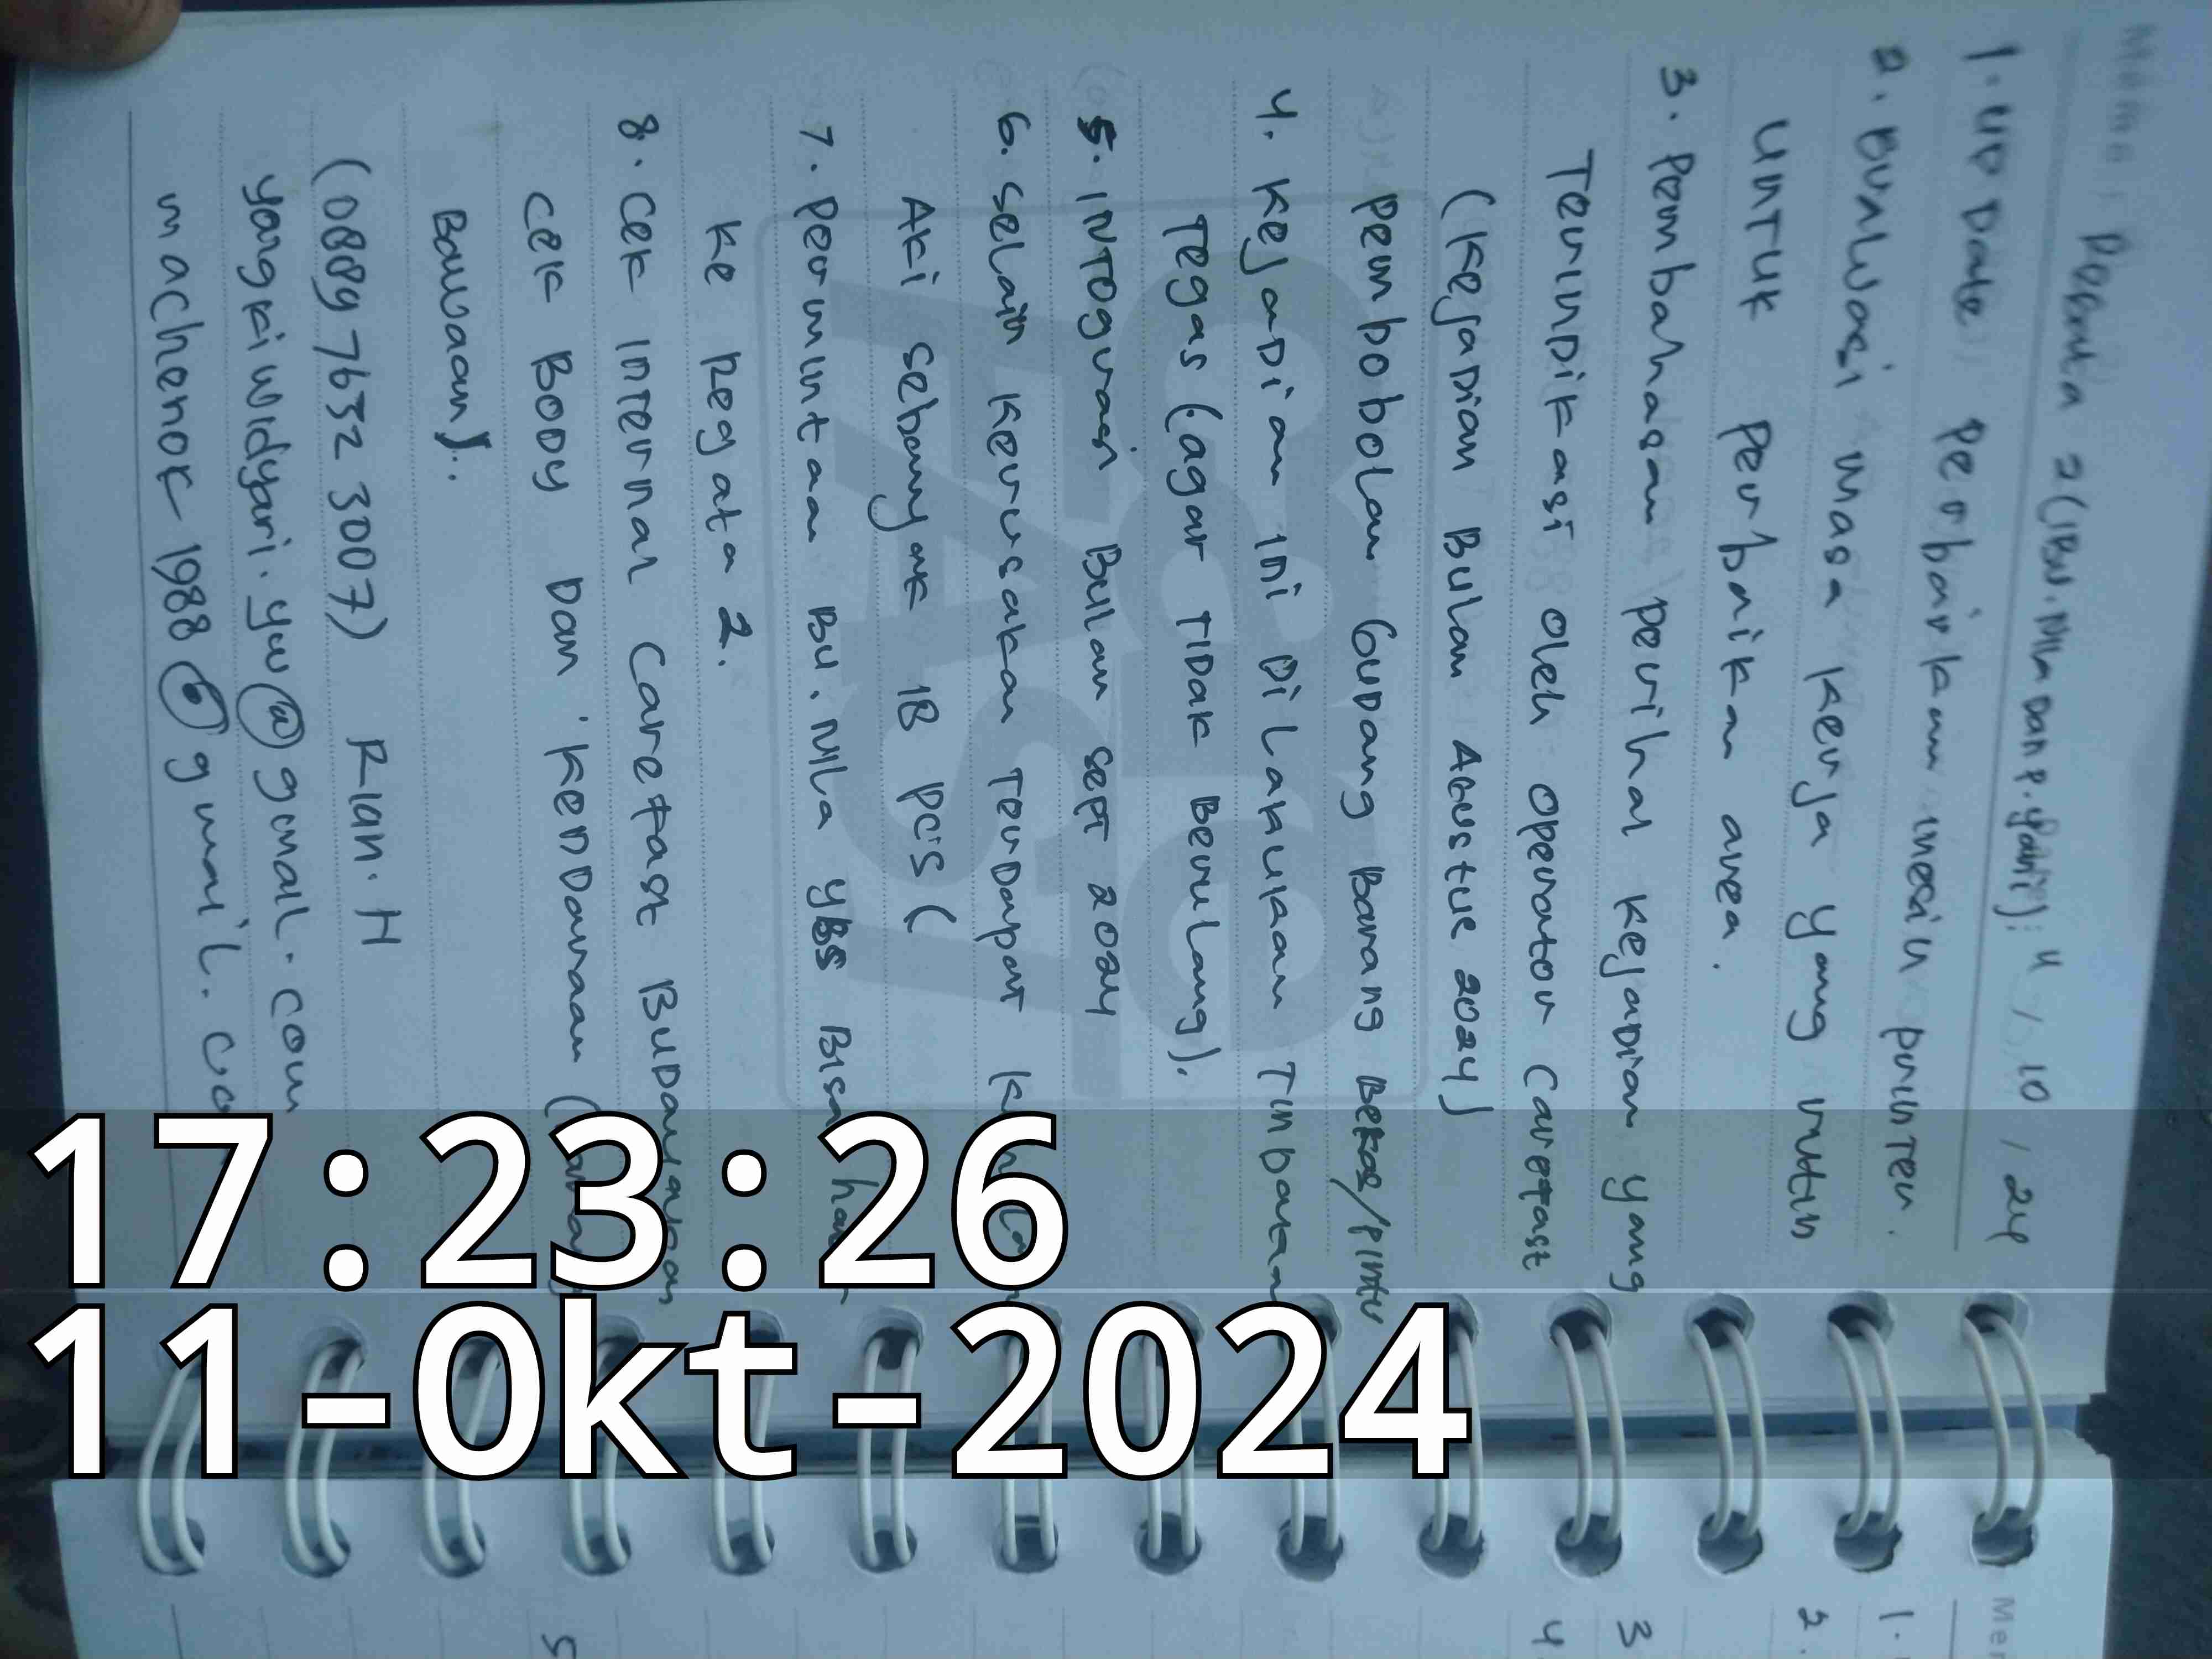 Memo:
2 (IBU. Nila Dan P. Yani): 4 / 10 / 24
1. UPDate Perbaikan mesin printer.
2. Evaluasi masa kerja yang rutin
UNTUK Perbaikan area.
3. Pembahasan perihal kejadian yang
TerinDikasi oleh operator Carefast
(kejadian Bulan Agustus 2024)
Pembobolan Gudang Barang Bekas/Pintu
4. Kejadian ini Dilakukan Tindakan
Tegas (agar TIDak Berulang).
5. INTOgrasi Bulan Sept 2024
6. Selain Kerusakan Terdapat
AKi sebanyak 18 PCS (
7. Permintaan Bu. Nila Bisa
Ke Regata 2.
8. Cek Internal Carefast
Cek BODy Dan KenDaraan (
Bawaan)..
(0889 7632 3007) Rian. H
yangkiwidyari.yw@gmail.com
machenok 1988 @gmail.co
17:23:26
11-Okt-2024
Me
1.
2.
3
4
5